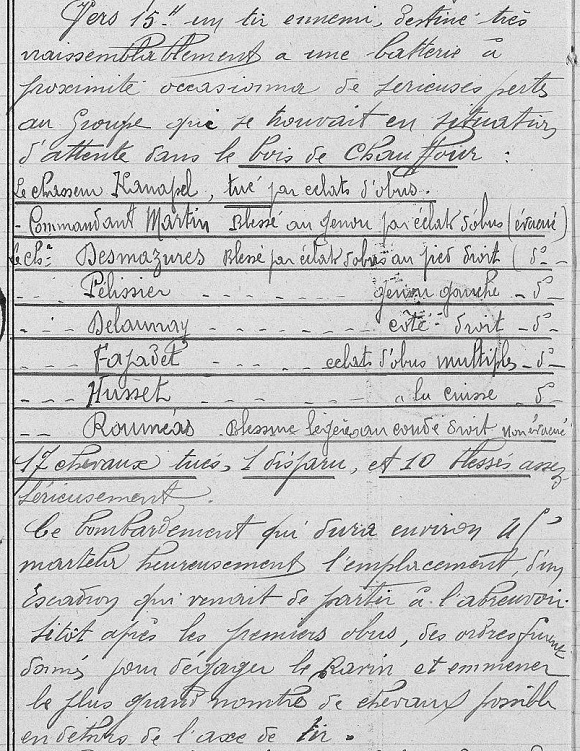 Vers 15h un tir ennemi, destiné très
vraisemblablement a une batterie à
proximité occasionna de serieuses pertes
au Groupe qui se trouvait en situation
d'attente dans le bois de Chauffour :
Le chasseur Kanapel, tué par eclats d'obus.
- Commandant Martin Blessé au genou par éclat d'obus (évacué)
Le chr Desmazures Blessé par éclat d'obus au pied droit ( do -
- - - Pélissier - - - - - - genou gauche - do -
- - - Delaunay - - - - - - côté - droit - do -
- - - Fajadet - - - - - eclats d'obus multiples - do -
- - - Husset - - - - - - a la cuisse - do -
- - Rouméas Blessure légère au coude droit non évacué
17 chevaux tués, 1 disparu, et 10 blessés assez
sérieusement.
Ce bombardement qui dura environ
martela heureusement l'emplacement d'un
Escadron qui venait de partir à l'abreuvoir.
Sitôt après les premiers obus, des ordres furent
donnés pour dégager le Ravin et emmener
le plus grand nombre de chevaux possible
en dehors de l'axe de tir.